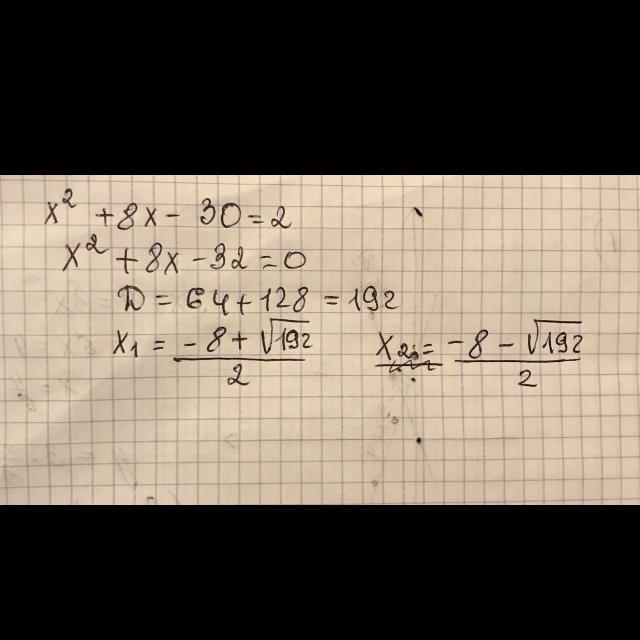 x² + 8x - 30 = 2
x² + 8x - 32 = 0
D = 64 + 128 = 192
x₁ = (-8 + √192) / 2    x₂ = (-8 - √192) / 2